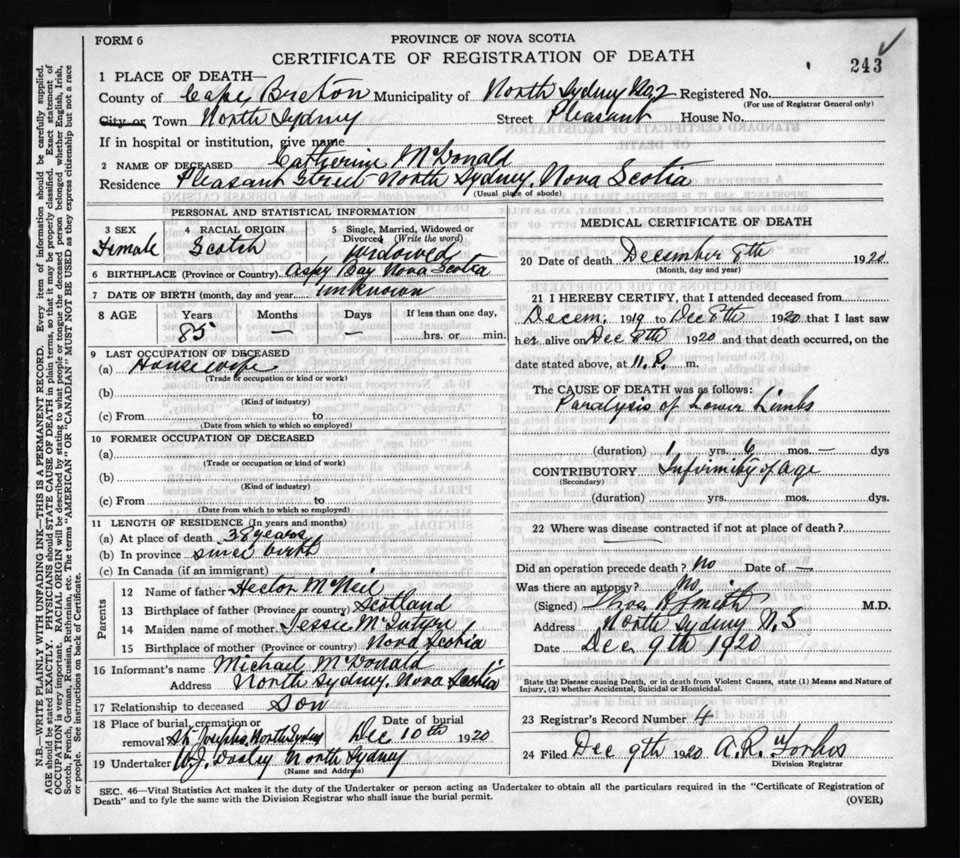 FORM 6
PROVINCE OF NOVA SCOTIA
CERTIFICATE OF REGISTRATION OF DEATH
243
1 PLACE OF DEATH—
County of Cape Breton Municipality of North Sydney No. 2 Registered No.
(For use of Registrar General only)
City or Town North Sydney Street Pleasant House No.
If in hospital or institution, give name
2 NAME OF DECEASED Catherine McDonald
Residence Pleasant Street North Sydney, Nova Scotia
(Usual place of abode)
PERSONAL AND STATISTICAL INFORMATION
3 SEX Female
4 RACIAL ORIGIN Scotch
5 Single, Married, Widowed or Divorced (Write the word) Widowed
6 BIRTHPLACE (Province or Country) Aspy Bay Nova Scotia
7 DATE OF BIRTH (month, day and year) unknown
8 AGE Years Months Days If less than one day,
85 — — hrs. or min.
9 LAST OCCUPATION OF DECEASED
(a) Housewife
(Trade or occupation or kind of work)
(b)
(Kind of industry)
(c) From to
(Date from which to which so employed)
10 FORMER OCCUPATION OF DECEASED
(a)
(Trade or occupation or kind of work)
(b)
(Kind of industry)
(c) From to
(Date from which to which so employed)
11 LENGTH OF RESIDENCE (In years and months)
(a) At place of death 38 years
(b) In province since birth
(c) In Canada (if an immigrant)
Parents
12 Name of father Hector McNeil
13 Birthplace of father (Province or country) Scotland
14 Maiden name of mother Jessie McIntyre
15 Birthplace of mother (Province or country) Nova Scotia
16 Informant's name Michael McDonald
Address North Sydney, Nova Scotia
17 Relationship to deceased Son
18 Place of burial, cremation or removal St. Josephs, North Sydney
Date of burial Dec 10th 1920
19 Undertaker W.J. Dooley North Sydney
(Name and Address)
MEDICAL CERTIFICATE OF DEATH
20 Date of death December 8th 1920
(Month, day and year)
21 I HEREBY CERTIFY, that I attended deceased from
Decem. 1919 to Dec 8th 1920 that I last saw
her alive on Dec 8th 1920 and that death occurred, on the
date stated above, at 11. P. m.
The CAUSE OF DEATH was as follows:
Paralysis of Lower Limbs
(duration) 1 yrs. 6 mos. — dys
CONTRIBUTORY Infirmity of age
(Secondary)
(duration) yrs. mos. dys.
22 Where was disease contracted if not at place of death?
Did an operation precede death? No Date of —
Was there an autopsy? No
(Signed) Thos R Smith M.D.
Address North Sydney N.S
Date Dec 9th 1920
State the Disease causing Death, or in death from Violent Causes, state (1) Means and Nature of
Injury, (2) whether Accidental, Suicidal or Homicidal.
23 Registrar's Record Number 4
24 Filed Dec 9th 1920 A.R. Forbes
Division Registrar
SEC. 46—Vital Statistics Act makes it the duty of the Undertaker or person acting as Undertaker to obtain all the particulars required in the "Certificate of Registration of
Death" and to fyle the same with the Division Registrar who shall issue the burial permit.
(OVER)
N.B.—WRITE PLAINLY WITH UNFADING INK—THIS IS A PERMANENT RECORD. Every item of information should be carefully supplied.
AGE should be stated EXACTLY. PHYSICIANS should STATE CAUSE OF DEATH in plain terms, so that it may be properly classified. Exact statement of
OCCUPATION is very important. RACIAL ORIGIN will be described by stating to what people or tongue the deceased person belonged whether English, Irish,
Scotch, French, German, Russian, Ruthenian, etc. The terms "AMERICAN" OR "CANADIAN" MUST NOT BE USED as they express citizenship but not a race
or people. See instructions on back of Certificate.